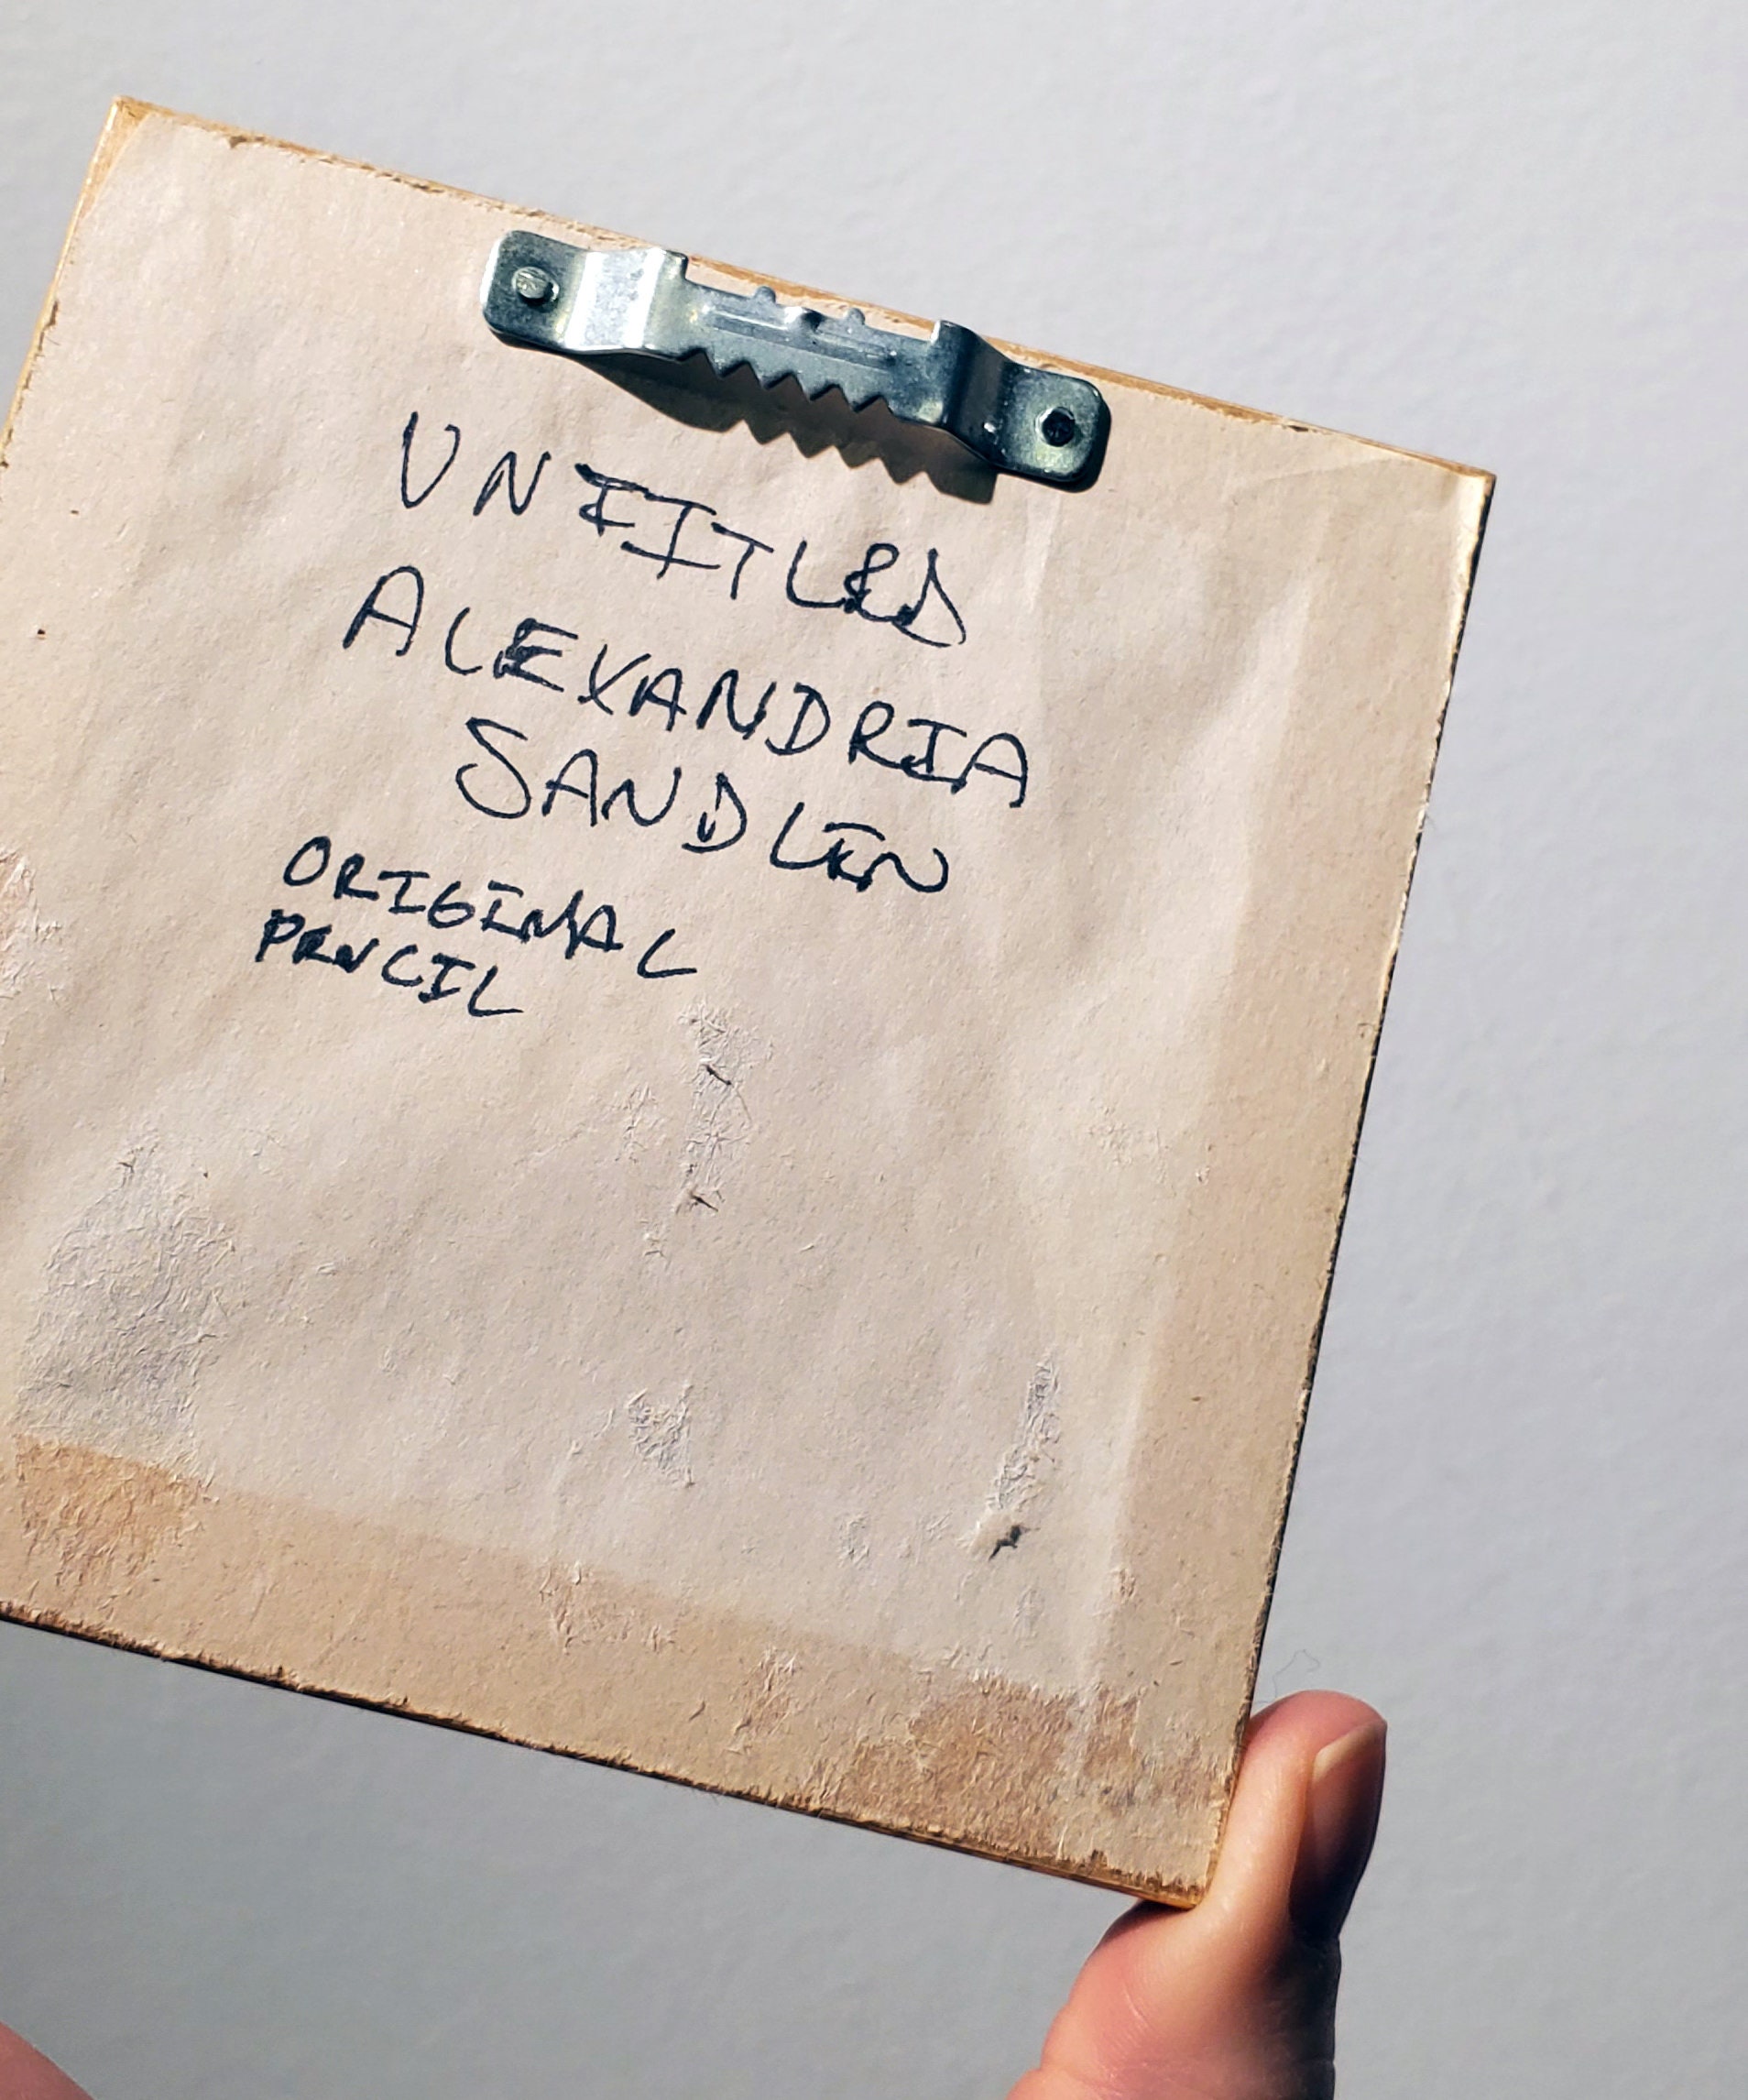 UNTITLED
ALEXANDRIA
SANDLIN
ORIGINAL
PENCIL